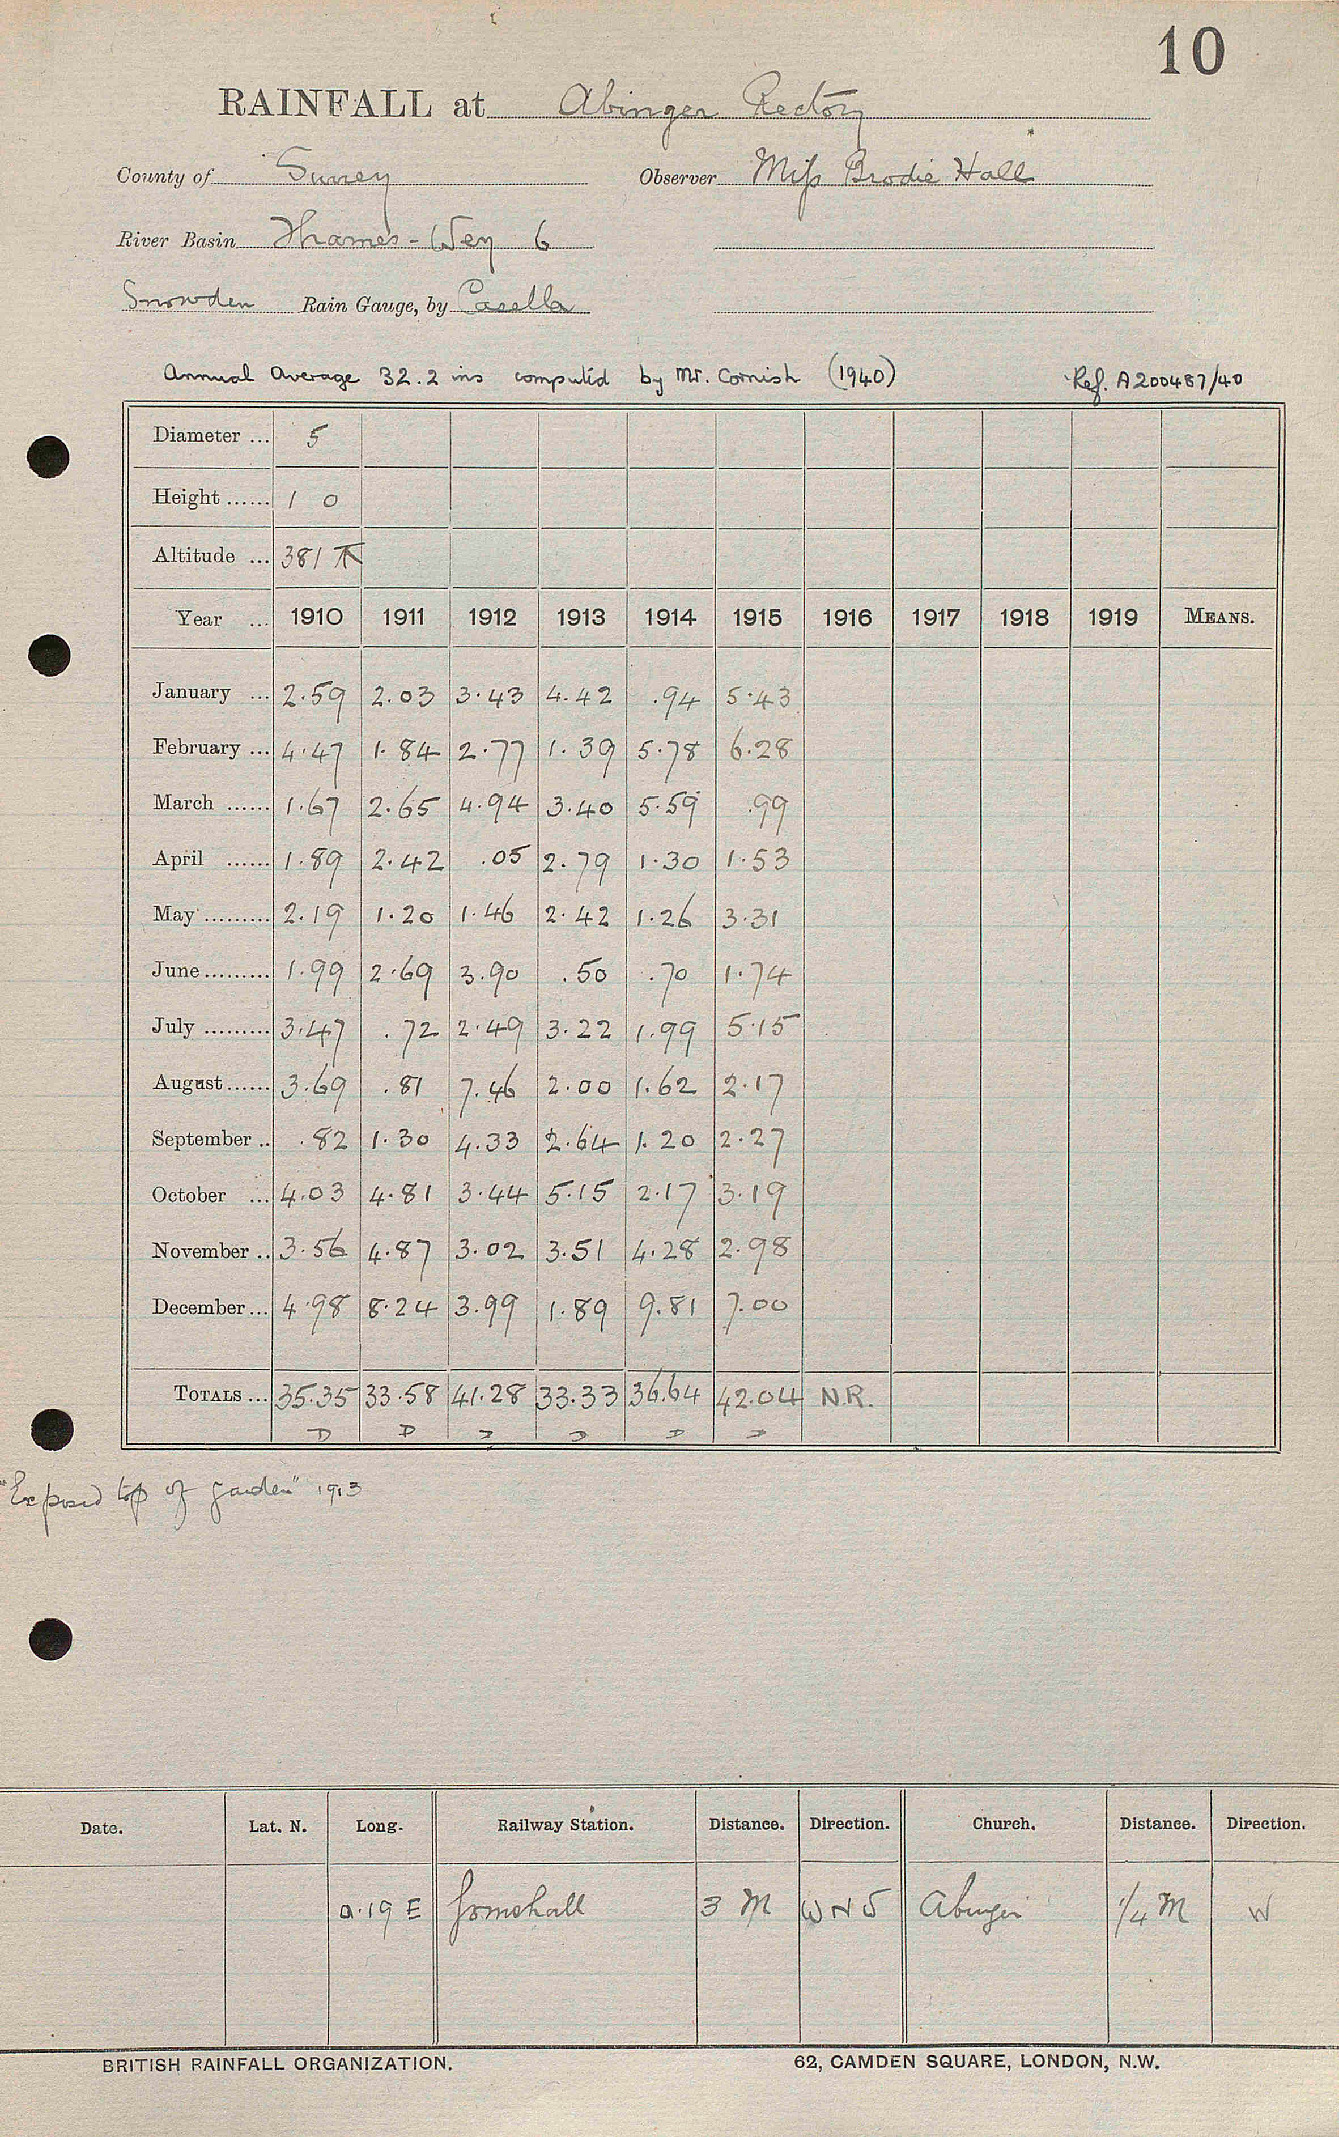 10
RAINFALL at Abinger Rectory
County of Surrey Observer Miss Brodie Hall
River Basin Thames - Wey 6
Snowden Rain Gauge, by Casella
Annual Average 32.2 ins computed by Mr. Cornish (1940) Ref. A200487/40
Diameter ... 5
Height ...... 1 0
Altitude ... 381
Year ... 1910 1911 1912 1913 1914 1915 1916 1917 1918 1919 MEANS.
January ... 2.59 2.03 3.43 4.42 .94 5.43
February ... 4.47 1.84 2.77 1.39 5.78 6.28
March ...... 1.67 2.65 4.94 3.40 5.59 .99
April ...... 1.89 2.42 .05 2.79 1.30 1.53
May ......... 2.19 1.20 1.46 2.42 1.26 3.31
June ......... 1.99 2.69 3.90 .50 .70 1.74
July ......... 3.47 .72 2.49 3.22 1.99 5.15
August ...... 3.69 .81 7.46 2.00 1.62 2.17
September .. .82 1.30 4.33 2.64 1.20 2.27
October ... 4.03 4.81 3.44 5.15 2.17 3.19
November .. 3.56 4.87 3.02 3.51 4.28 2.98
December ... 4.98 8.24 3.99 1.89 9.81 7.00
TOTALS ... 35.35 33.58 41.28 33.33 36.64 42.04 N.R.
D D D D D D
"Exposed top of garden" 1913
Date. Lat. N. Long. Railway Station. Distance. Direction. Church. Distance. Direction.
0.19 E Gomshall 3 M Abinger 1/4 M W
BRITISH RAINFALL ORGANIZATION. 62, CAMDEN SQUARE, LONDON, N.W.